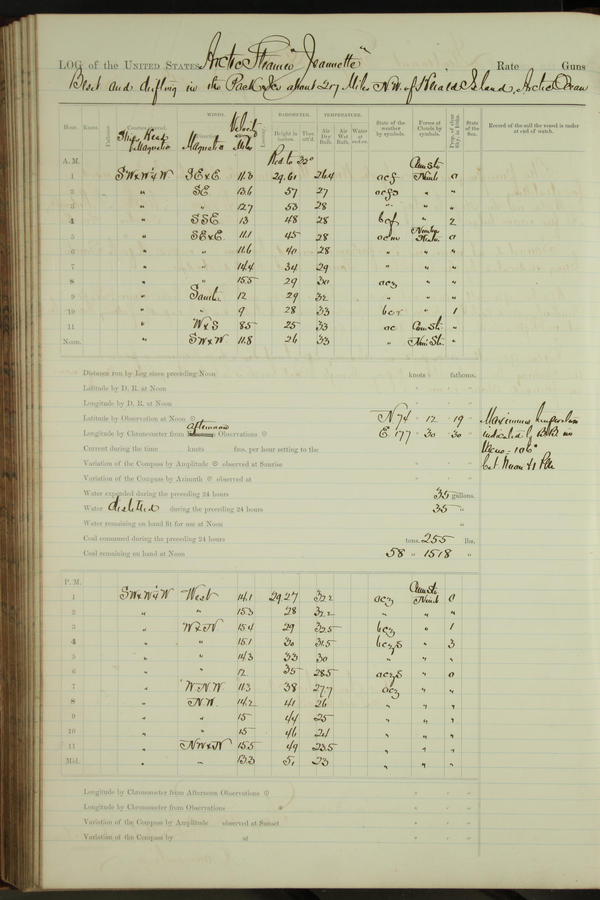 LOG of the UNITED STATES Arctic Steamer "Jeannette" Rate Guns
Beset and drifting in the Pack Ice about 217 Miles N.W. of Herald Island, Arctic Ocean
Hour. Knots. Fathoms. Ships Head Magnetic WINDS. Magnetic Velocity Miles BAROMETER. Height in Inches. Ther. att'd. TEMPERATURE. Air Dry Bulb. Air Wet Bulb. Water at surface. State of the weather by symbols. Forms of Clouds by symbols. Prop. of clear Sky, in 10ths. State of the Sea. Record of the sail the vessel is under at end of watch.
A. M. Red to 32°
1 SW x W ¼ W SE x E 11.3 29.61 26.4 ocf Nimb 0
2 " SE 13.6 57 27 ocfs " "
3 " " 12.7 53 28 " " "
4 " SSE 13 48 28 bcf " 2
5 " SE x E 11.1 45 28 ocm 0
6 " " 11.6 40 28 " " "
7 " " 14.4 34 29 " " "
8 " " 15.5 29 30 ocz " "
9 " South 12 29 32 " " "
10 " " 9 28 33 bcv " 1
11 " W x S 8.5 25 33 oc Cum Str "
Noon. " SW x W 11.8 26 33 " " "
Distance run by Log since preceding Noon knots fathoms.
Latitude by D. R. at Noon
Longitude by D. R. at Noon
Latitude by Observation at Noon N 74 12 19
Longitude by Chronometer from afternoon Observations E 177 30 30
Maximum temperature
indicated by B.B. in
Vacuo = 106°
bet. Noon & 1 P.M.
Current during the time knots fms. per hour setting to the
Variation of the Compass by Amplitude observed at Sunrise
Variation of the Compass by Azimuth observed at
Water expended during the preceding 24 hours 35 gallons.
Water distilled during the preceding 24 hours 35 "
Water remaining on hand fit for use at Noon "
Coal consumed during the preceding 24 hours tons. 255 lbs.
Coal remaining on hand at Noon 58 " 1518 "
P. M.
1 SW x W ¼ W West 14.1 29.27 32.2 ocz Nimb 0
2 " " 15.3 28 32.2 " " "
3 " W x N 15.4 29 32.5 bcz " 1
4 " " 15.1 30 31.5 bczs " 3
5 " " 14.3 33 30 " " "
6 " " 12 35 28.5 oczs " 0
7 " WNW 11.3 38 27.7 ocz " "
8 " NW 14.2 41 26 " " "
9 " " 15 44 25 " " "
10 " " 15 46 24 " " "
11 " NW x N 15.5 49 23.5 " " "
Mid. " " 13.3 51 23 " " "
Longitude by Chronometer from Afternoon Observations
Longitude by Chronometer from Observations
Variation of the Compass by Amplitude observed at Sunset
Variation of the Compass by at